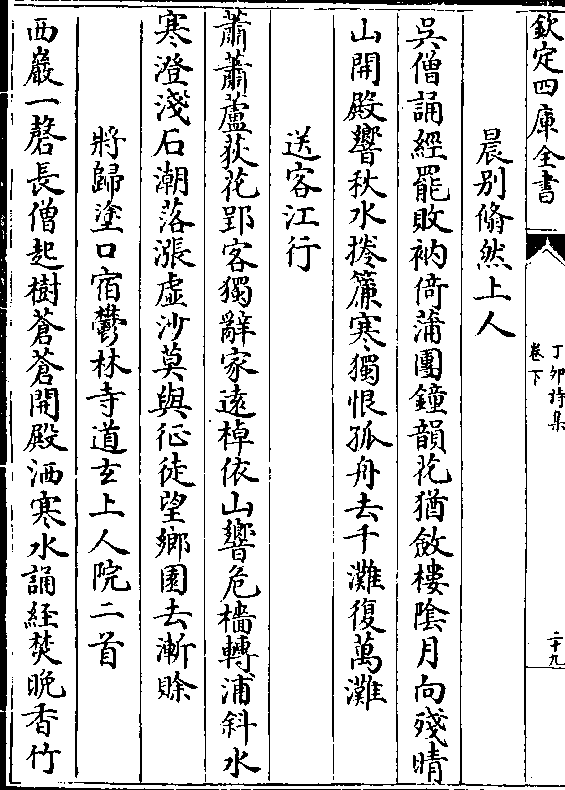 欽定四庫全書
丁卯詩集
卷下
二十九
晨别翛然上人
吳僧誦經罷敗衲倚蒲團鐘韻花猶斂樓隂月向殘晴
山開殿響秋水捲簾寒獨恨孤舟去千灘復萬灘
送客江行
蕭蕭蘆荻花郢客獨辭家遠棹依山響危檣轉浦斜水
寒澄淺石潮落漲虚沙莫與征徒望鄉園去漸賖
將歸塗口宿鬱林寺道玄上人院二首
西巖一磬長僧起樹蒼蒼開殿洒寒水誦經焚晚香竹